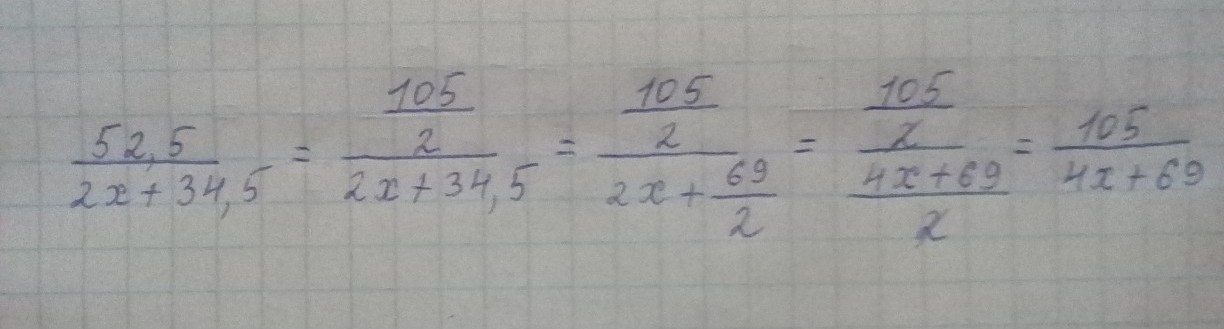 52,5 / 2x + 34,5 = 105/2 / 2x + 34,5 = 105/2 / 2x + 69/2 = 105/2 / 4x + 69/2 = 105 / 4x + 69